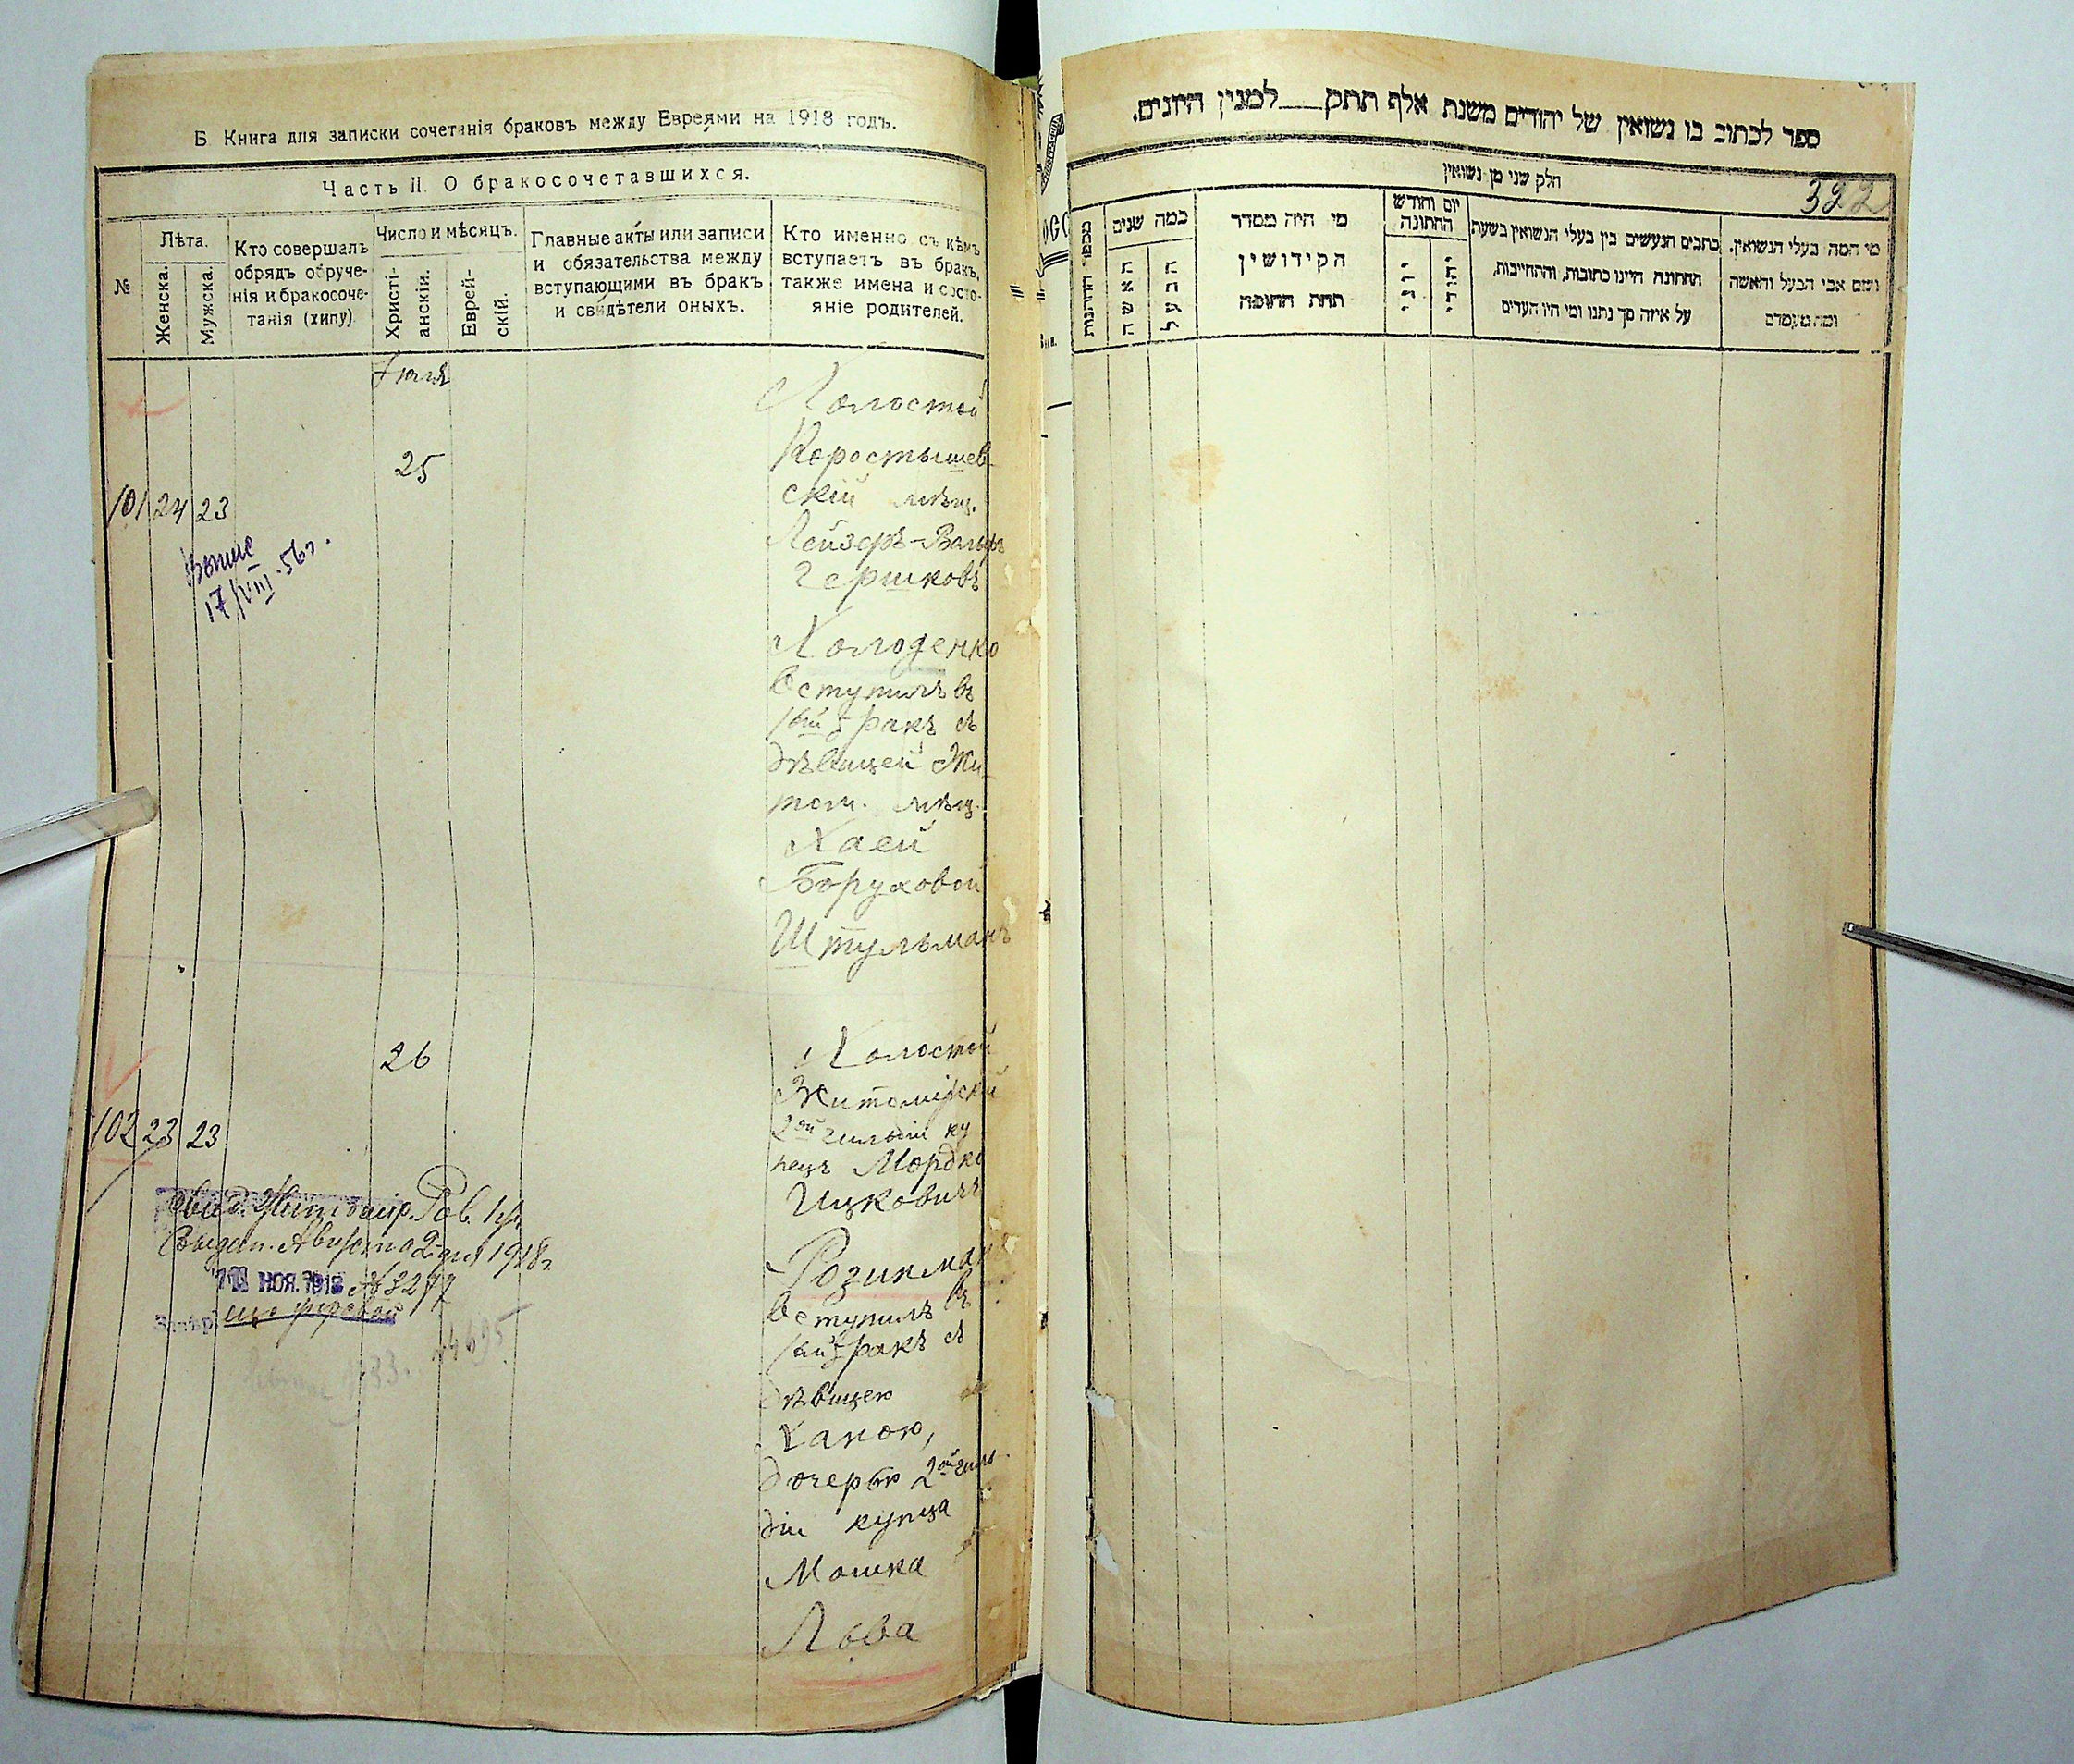 Б. Книга для записки сочетанія браковъ между Евреями на 1918 годъ.
Часть II. О бракосочетавшихся.
№
Лѣта.
Женска.
Мужска.
Кто совершалъ
обрядъ обруче-
нія и бракосоче-
танія (хипу)
Число и мѣсяцъ.
Христі-
анскій.
Еврей-
скій.
Главные акты или записи
и обязательства между
вступающими въ бракъ
и свидѣтели оныхъ.
Кто именно съ кѣмъ
вступаетъ въ бракъ,
также имена и состо-
яніе родителей.
101 24 23
25
17/VIII.56г.
Холостой
Коростышев-
скій мѣщ.
Лейзеръ-Вольфъ
Гершковъ
Холоденко
вступилъ въ
1ый бракъ съ
дѣвицей Жи-
том. мѣщ.
Хаей
Боруховой
Штульманъ
102 23 23
26
Холостой
Житомірскій
2ой гильдіи ку
пецъ Мордко
Ицковичъ
Розинманъ
вступилъ въ
1ый бракъ съ
дѣвицею
Ханою,
дочерью 2ой гиль-
діи купца
Мошка
Льва
Выдан. Августа 2 дня 1918г
НОЯ. 1918 № 3277
№ 4695
ספר לכתוב בו נשואין של יהודים משנת אלף תתק___למנין היונים.
322
חלק שני מן נשואין
מספר החתונות
כמה שנים
האשה
הבעל
מי היה מסדר
הקידושין
תחת החופה
יום וחודש
החתונה
יוני
יהודי
כתבים הנעשים בין בעלי הנשואין בשעת
החתונה היינו כתובות, והתחייבות,
על איזה סך נתנו ומי היו העדים
מי המה בעלי הנשואין.
ושם אבי הבעל והאשה
ומה מעמדם